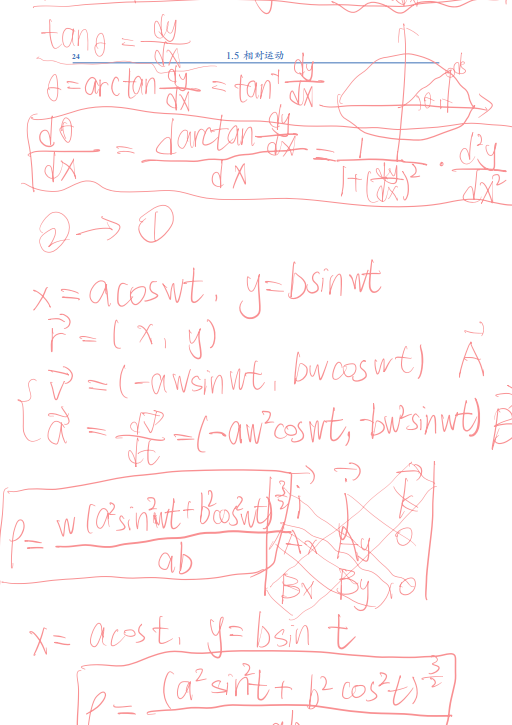 tanθ = dy/dx
24 1.5 相对运动
θ = arctan dy/dx = tan⁻¹ dy/dx
dθ/dx = d arctan dy/dx / dx = 1/(1+(dy/dx)²) · d²y/dx²
② → ①
x = acoswt, y = bsinwt
r⃗ = (x, y)
v⃗ = (-awsinwt, bwcoswt) A⃗
a⃗ = dv⃗/dt = (-aw²coswt, -bw²sinwt) B⃗
ρ = w(a²sin²wt + b²cos²wt)^(3/2) / ab
i⃗ j⃗ k⃗
Ax Ay 0
Bx By 0
x = acost, y = bsin t
ρ = (a²sin²t + b²cos²t)^(3/2)